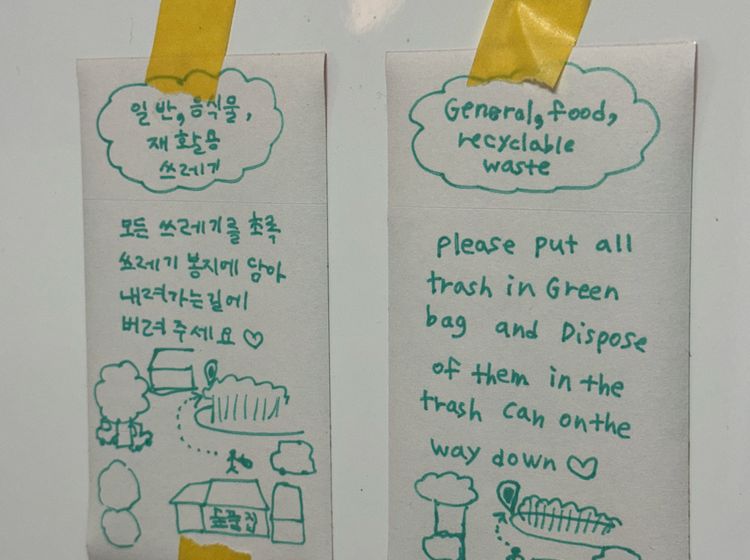 일반, 음식물,
재활용
쓰레기
모든 쓰레기를 초록
쓰레기 봉지에 담아
내려가는길에
버려 주세요 ♡
General, food,
recyclable
waste
please put all
trash in Green
bag and Dispose
of them in the
trash can on the
way down ♡